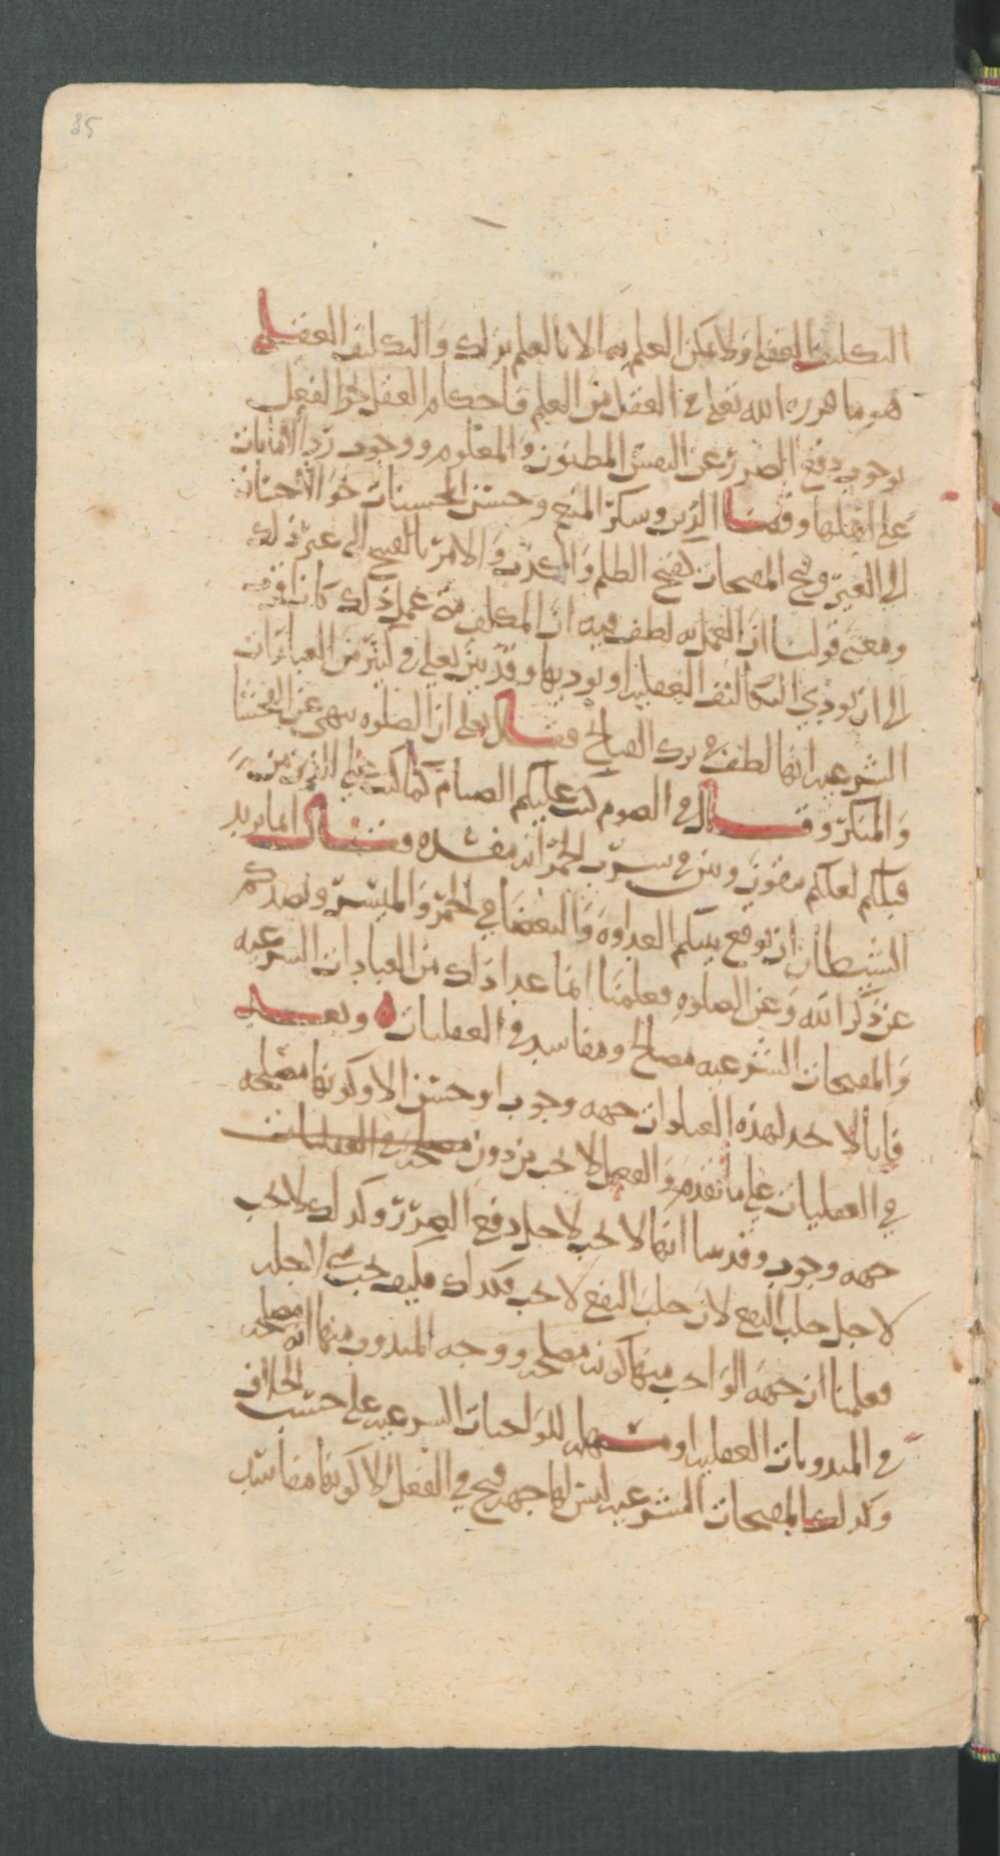 85
التكليف العقلي ولا يمكن العلم به الا بالعلم بذلك والتكليف العقلي
هو ما قرره الله تعلى في العقل من العلم باحكام العقل نحو الفعل
بوجوب دفع الضرر عن النفس المظنون والمعلوم ووجوب رد الامانات
على اهلها وقضا الدين وشكر المنعم وحسن المحسنات نحو الاحسان
الى الغير وقبح المقبحات كقبح الظلم والكذب والامر بالقبيح الى غير ذلك
ومعنى قولنا ان العمل به لطف فيه ان المكلف متى عمل ذلك كان اقرب
الى ان يودي التكاليف العقليه او يوديها وقد بين تعلى في كثير من العبادات
الشرعيه انها لطف في ترك القبائح فقال تعلى ان الصلوه تنهى عن الفحشا
والمنكر وقال في الصوم كتب عليكم الصيام كما كتب على الذين من
قبلكم لعلكم تتقون وبين في شرب الخمر انه مفسده فقال انما يريد
الشيطان ان يوقع بينكم العداوه والبغضا في الخمر والميسر ويصدكم
عن ذكر الله وعن الصلوه فعلمنا انما عدا ذلك من العبادات الشرعيه
والمقبحات الشرعيه مصالح ومفاسد في العقليات وبعد
فانا لا نجد لهذه العبادات جهه وجوب او حسن الا وكونها مصلحه
في العقليات على ما تقدم والفعل لا يجب من دون مصلحه في العقليات
جهه وجوب وقد بينا انها لا تجب لاجل دفع الضرر وكذلك لا تجب
لاجل جلب النفع لان جلب النفع لا يجب فكذلك فكيف يجب شي لاجله
فعلمنا ان جهه الواجب منها كونه مصلحه ووجه المندوب منها انه مصلحه
في المندوبات العقليه او للواجبات الشرعيه على حسب الخلاف
وكذلك المقبحات الشرعيه ليس لها جهه قبح في العقل الا كونها مفاسد